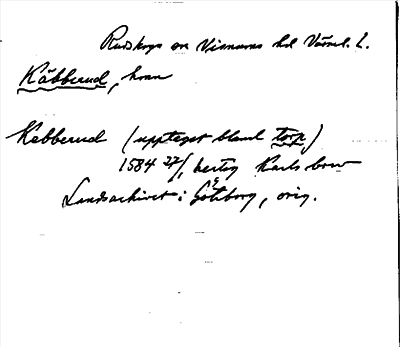 Rudskoga sn Visnums hd Värml. l.
Käbberud, hmn
Kebberud (upptaget bland torp)
1584 27/1 hertig Karls brev
Landsarkivet i Göteborg, orig.